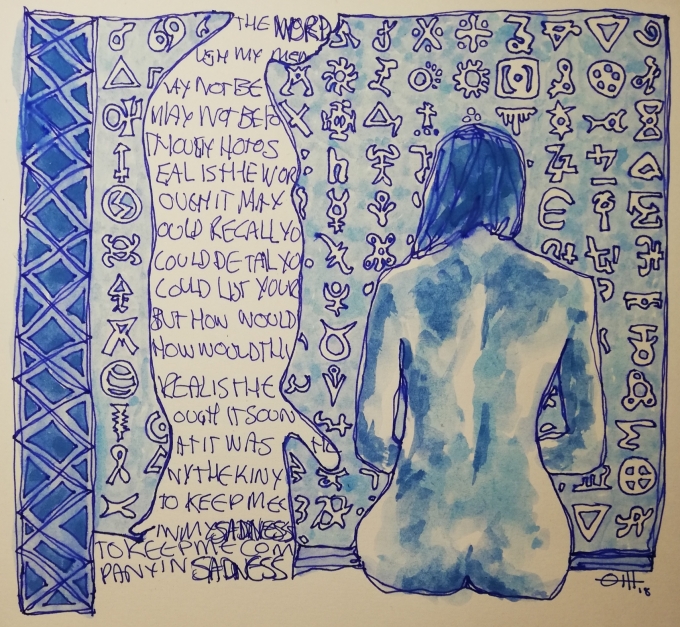 THE WORD
MY MEM
AY NOT BE
MAY NOT BE FO
MOUTH HOLDS
EAL IS THE WOR
OUGH IT MAY
OULD RECALL YO
COULD DETAIL YO
COULD LIST YOUR
BUT HOW WOULD
HOW WOULD THI
REAL IS THE
OUGH IT SOUN
AT IT WAS
NY THE KINY
TO KEEP ME C
IN MY SADNESS
TO KEEP ME COM
PANY IN SADNESS